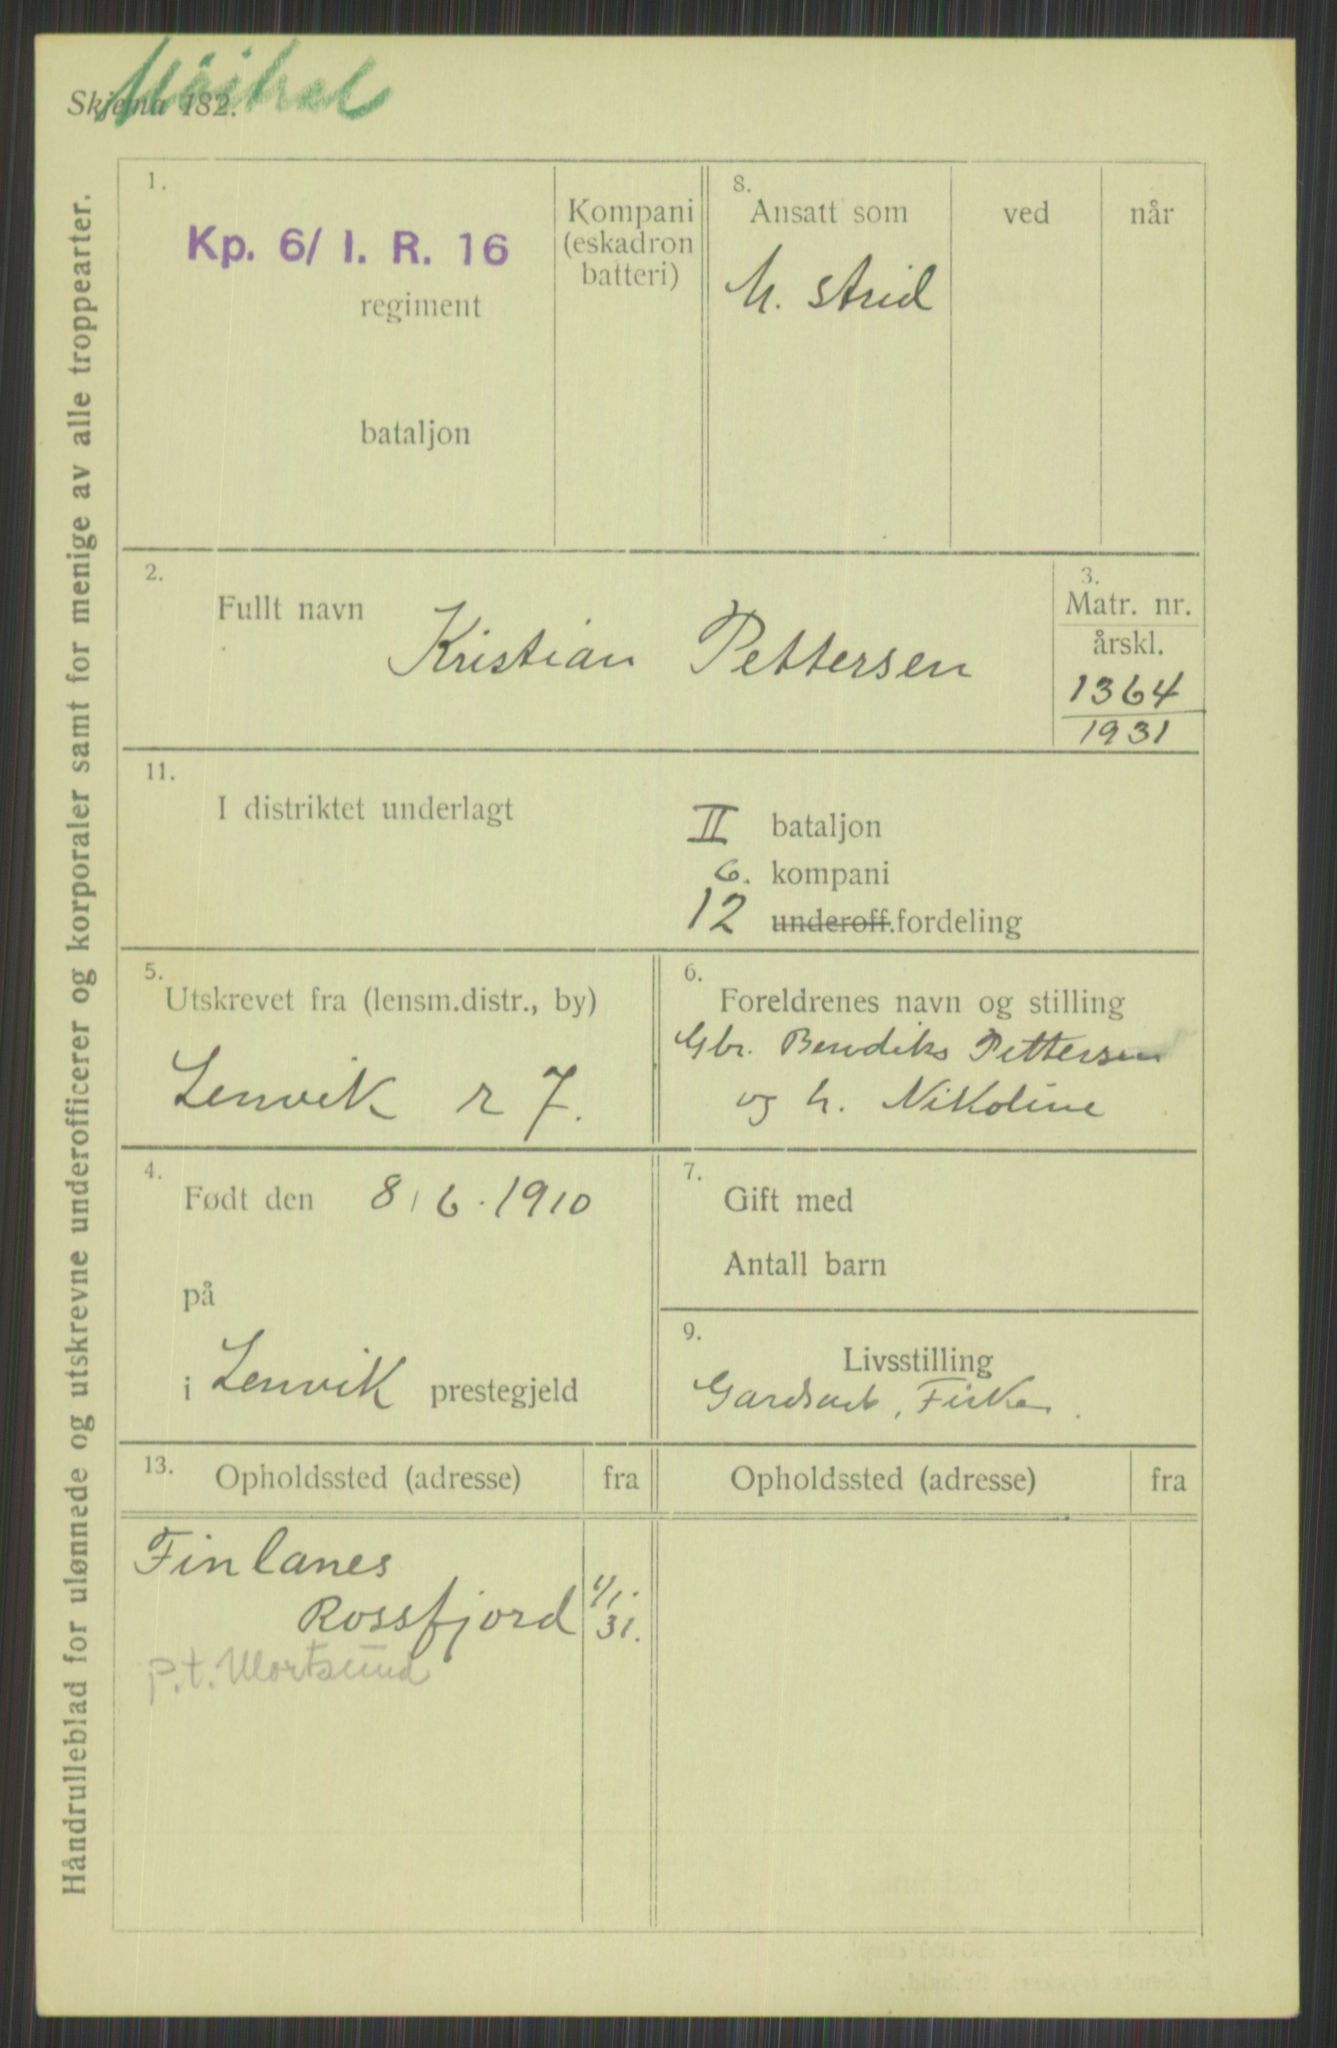 Skjema 182.
Håndrulleblad for ulønnede og utskrevne underofficerer og korporaler samt for menige av alle troppearter.
1.
Kp. 6/ I. R. 16
regiment
bataljon
Kompani
(eskadron
batteri)
8.
Ansatt som
ved
når
M. strid
2.
Fullt navn
Kristian Pettersen
3.
Matr. nr.
årskl.
1364
1931
11.
I distriktet underlagt
II bataljon
6. kompani
12 underoff.fordeling
5.
Utskrevet fra (lensm.distr., by)
Lenvik r 7.
6.
Foreldrenes navn og stilling
Gbr. Bendiks Pettersen
og h. Nikoline
4.
Født den 8/6.1910
på
i Lenvik prestegjeld
7.
Gift med
Antall barn
9.
Livsstilling
Gardsarb, Fisker.
13.
Opholdssted (adresse)
fra
Opholdssted (adresse)
fra
Finlanes
Rossfjord
1/1.
31.
p.t. Mortsund